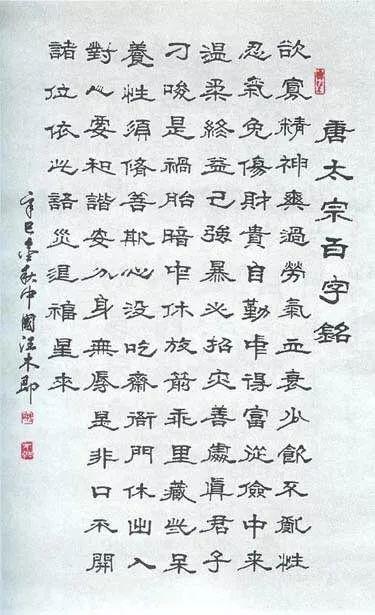 唐太宗百字銘
欲寡精神爽過勞氣血衰少飲不亂性
忍氣免傷財貴自勤中得富從儉中來
溫柔終益己強暴必招灾善處真君子
刁唆是禍胎暗中休放箭乖里藏些呆
養性須脩善欺心没吃齋衙門休出入
對人要和諧安分身無辱是非口不開
諸位依此語災退福星來
辛巳金秋中國